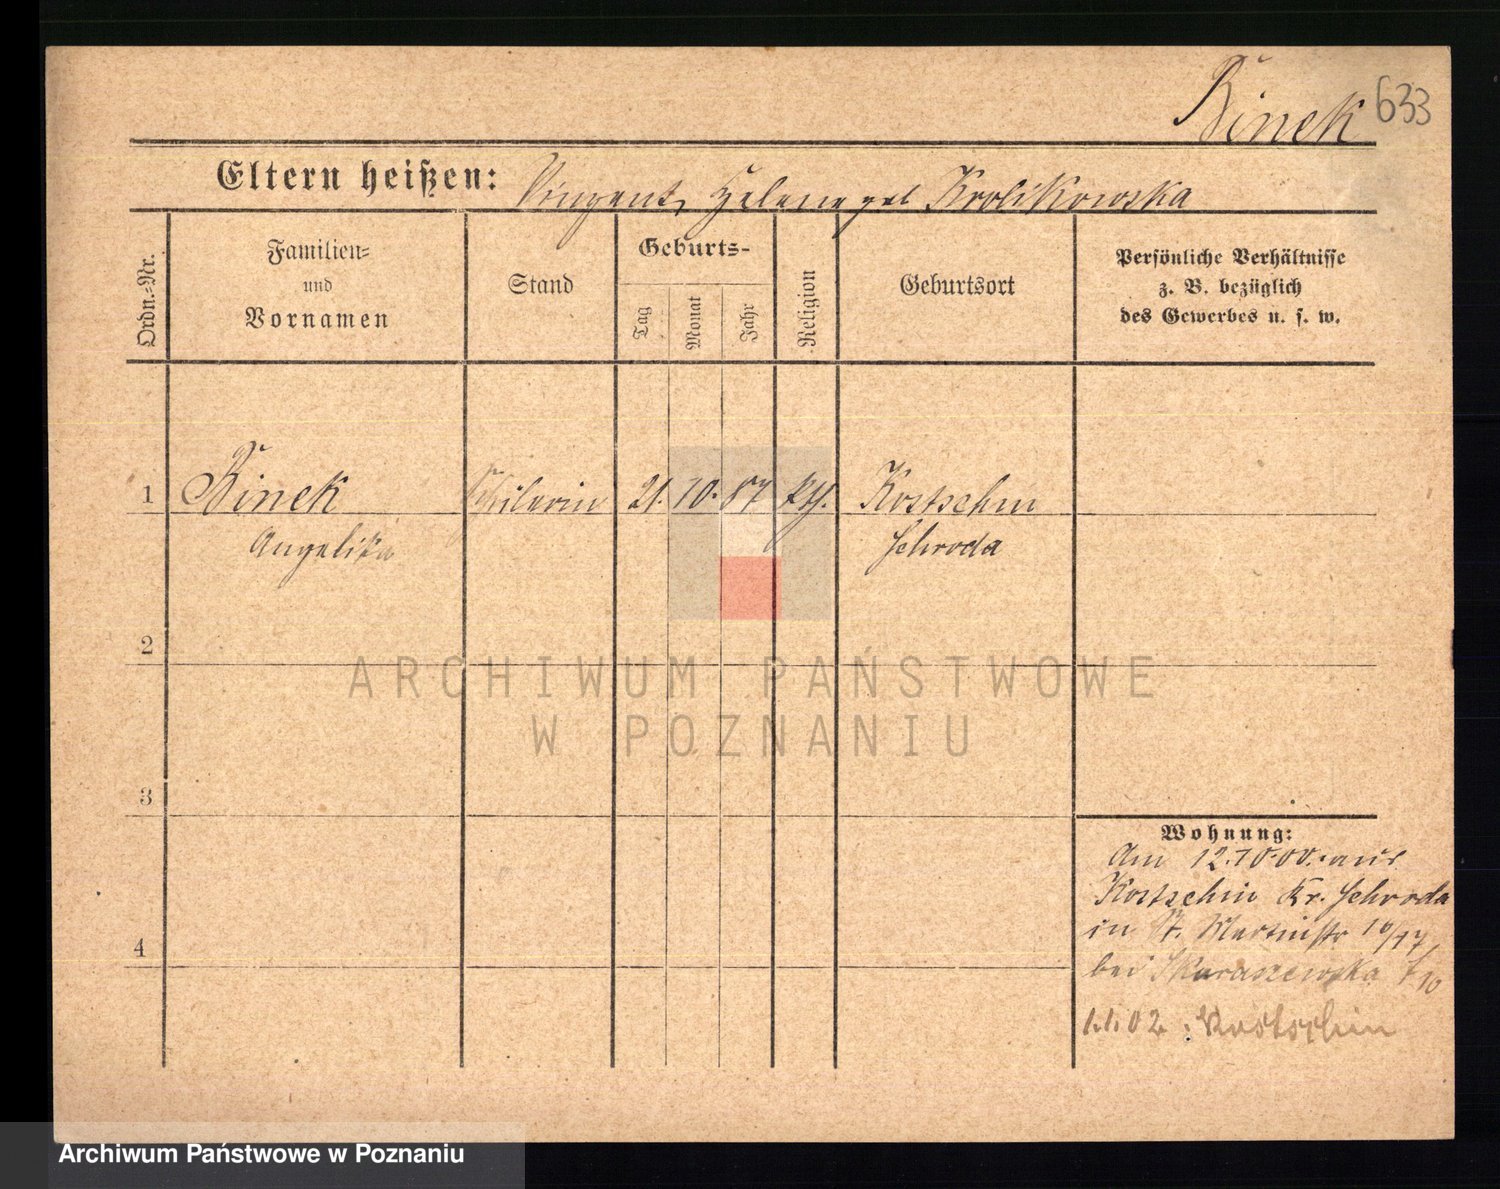 Binek 633
Eltern heißen: Vinzent, Helene geb Krolikowska
Ordn.-Nr.
Familien-
und
Vornamen
Stand
Geburts-
Tag
Monat
Jahr
Religion
Geburtsort
Persönliche Verhältnisse
z. B. bezüglich
des Gewerbes u. s. w.
1 Binek Schülerin 21. 10. 87 kth. Kostschin
Angelika Schroda
2
3
4
Wohnung:
Am 12.10.00. aus
Kostschin Kr. Schroda
in St. Martinstr 16/17
bei Skaraszewska
1.1.02 Kostschin
ARCHIWUM PAŃSTWOWE
W POZNANIU
Archiwum Państwowe w Poznaniu